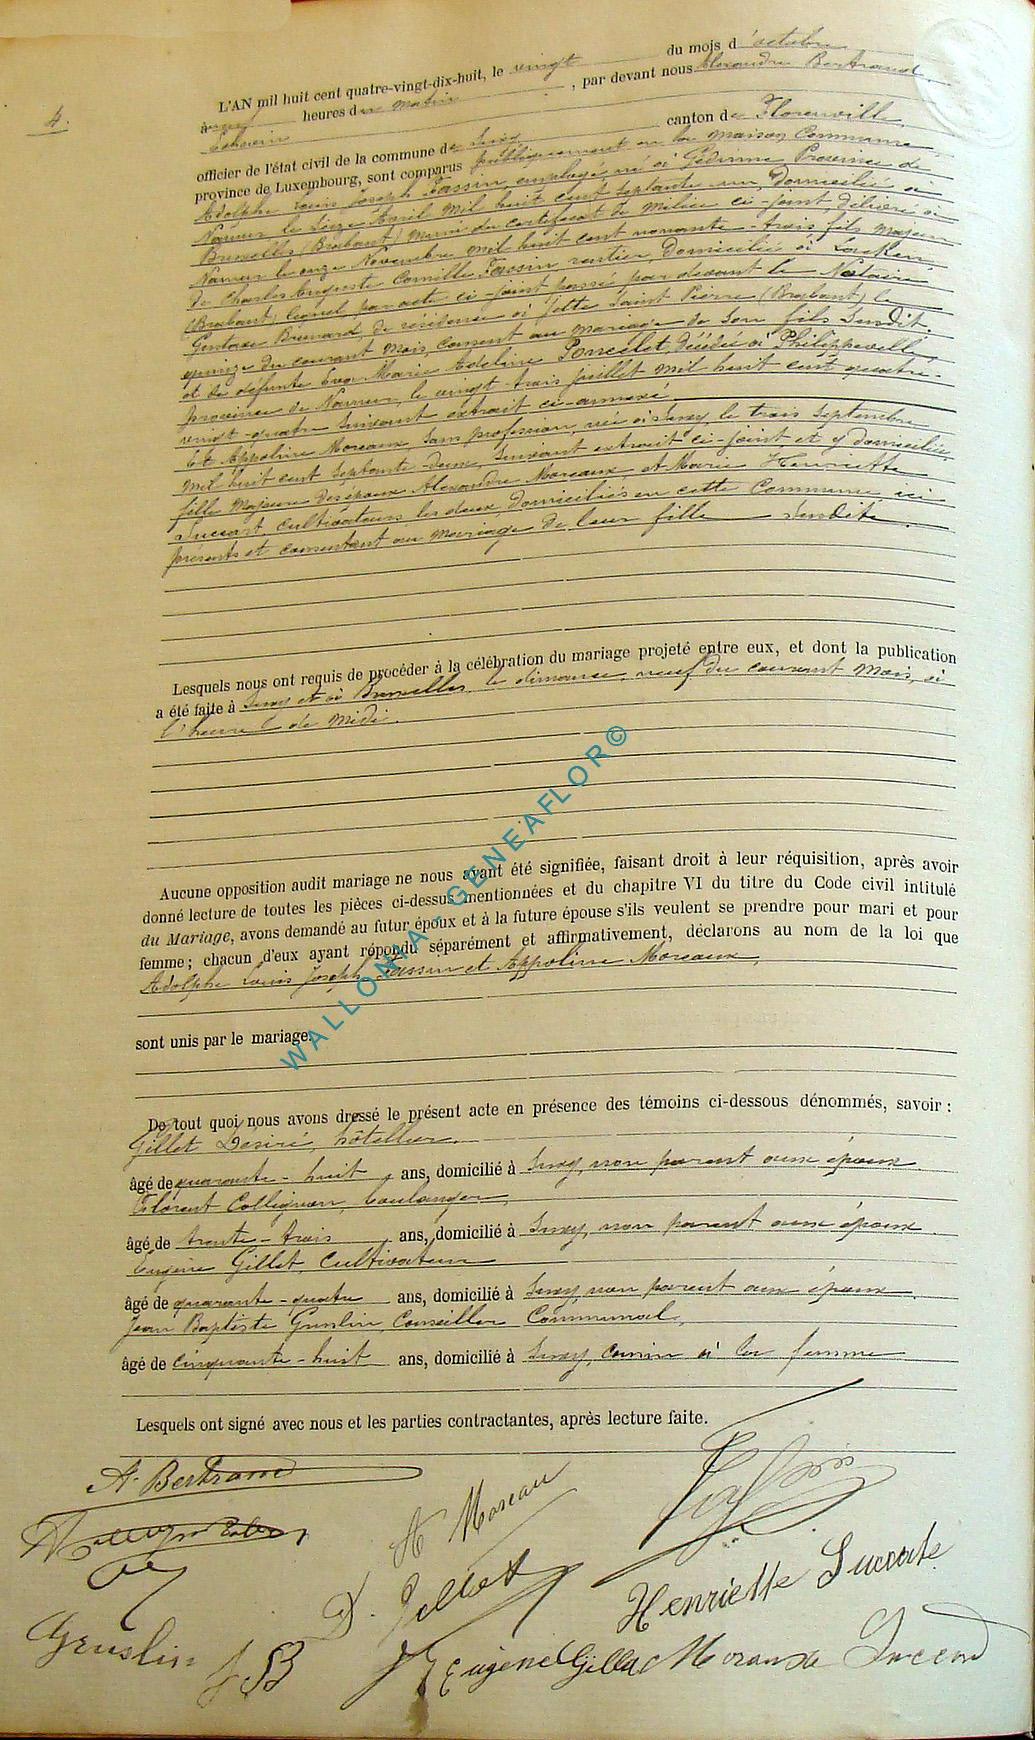 4.
L'AN mil huit cent quatre-vingt-dix-huit, le vingt du mois d'octobre
à neuf heures du matin, par devant nous Alexandre Bertrand,
Echevin
officier de l'état civil de la commune de Suxy canton de Florenville,
province de Luxembourg, sont comparus publiquement en la maison Communale,
Adolphe Louis Joseph Fassin, employé, né à Gedinne, Province de
Namur le seize Avril mil huit cent septante un, domicilié à
Bruxelles (Brabant) muni du certificat de milice ci-joint, délivré à
Namur le onze Novembre mil huit cent nonante-trois fils majeur
de Charles Auguste Camille Fassin, rentier, domicilié à Laeken,
(Brabant) lequel par acte ci-joint passé par devant le Notaire
Gustave de résidence à Jette Saint Pierre (Brabant) le
quinze du courant mois, consent au mariage de son fils susdit.
et de défunte Eva Marie Adeline Poncelet, décédée à Philippeville,
province de Namur, le vingt-trois juillet mil huit cent quatre-
vingt-quatre suivant extrait ci-annexé.
Et Appoline Moreaux sans profession, née à Suxy, le trois septembre
mil huit cent septante-deux, suivant extrait ci-joint et y domiciliée,
fille majeure des époux Alexandre Moreaux et Marie Henriette
Succart, cultivateurs, les deux domiciliés en cette Commune ici
présents et consentant au mariage de leur fille susdite.
Lesquels nous ont requis de procéder à la célébration du mariage projeté entre eux, et dont la publication
a été faite à Suxy et à Bruxelles le dimanche, neuf du courant mois, à
l'heure de midi.
Aucune opposition audit mariage ne nous ayant été signifiée, faisant droit à leur réquisition, après avoir
donné lecture de toutes les pièces ci-dessus mentionnées et du chapitre VI du titre du Code civil intitulé
du Mariage, avons demandé au futur époux et à la future épouse s'ils veulent se prendre pour mari et pour
femme; chacun d'eux ayant répondu séparément et affirmativement, déclarons au nom de la loi que
Adolphe Louis Joseph Fassin et Appoline Moreaux,
sont unis par le mariage.
De tout quoi nous avons dressé le présent acte en présence des témoins ci-dessous dénommés, savoir :
Gillet Désiré, hôtellier,
âgé de quarante-huit, ans, domicilié à Suxy, non parent aux époux
Florent Collignon, boulanger,
âgé de trente-trois, ans, domicilié à Suxy, non parent aux époux.
Eugène Gillet, Cultivateur
âgé de quarante-quatre ans, domicilié à Suxy, non parent aux époux.
Jean Baptiste Guslin, Conseiller Communal,
âgé de cinquante-huit ans, domicilié à Suxy, cousin à la femme
Lesquels ont signé avec nous et les parties contractantes, après lecture faite.
A. Bertrand
A. Moreau
D. Gillet
Henriette Succarte
Geuslin JB
Eugène Gillet
WALLONIA - GENEAFLOR©